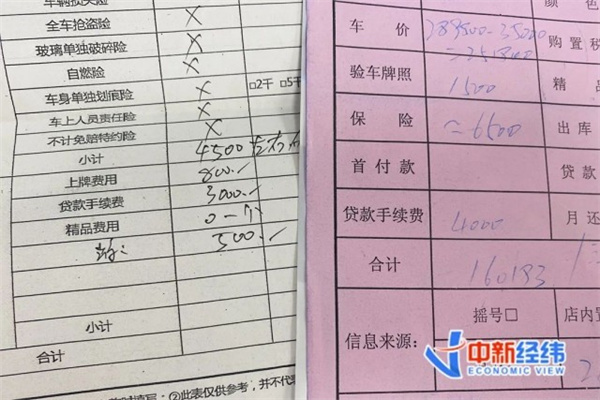 车辆损失险
全车抢盗险 X
玻璃单独破碎险 X
自燃险 X
车身单独划痕险 X □2千 □5千
车上人员责任险 X
不计免赔特约险 X
小计 4500 左右
上牌费用 800.
贷款手续费 3000.
精品费用 0一个
500.
小计
合计
②此表仅供参考，并不代
颜色
车价 289500-35000 购置税
验车牌照 1500 精品
保险 ≈6500 出库
首付款 贷款
贷款手续费 4000 月还
合计 160193
信息来源: 摇号□ 店内
中新经纬
ECONOMIC VIEW